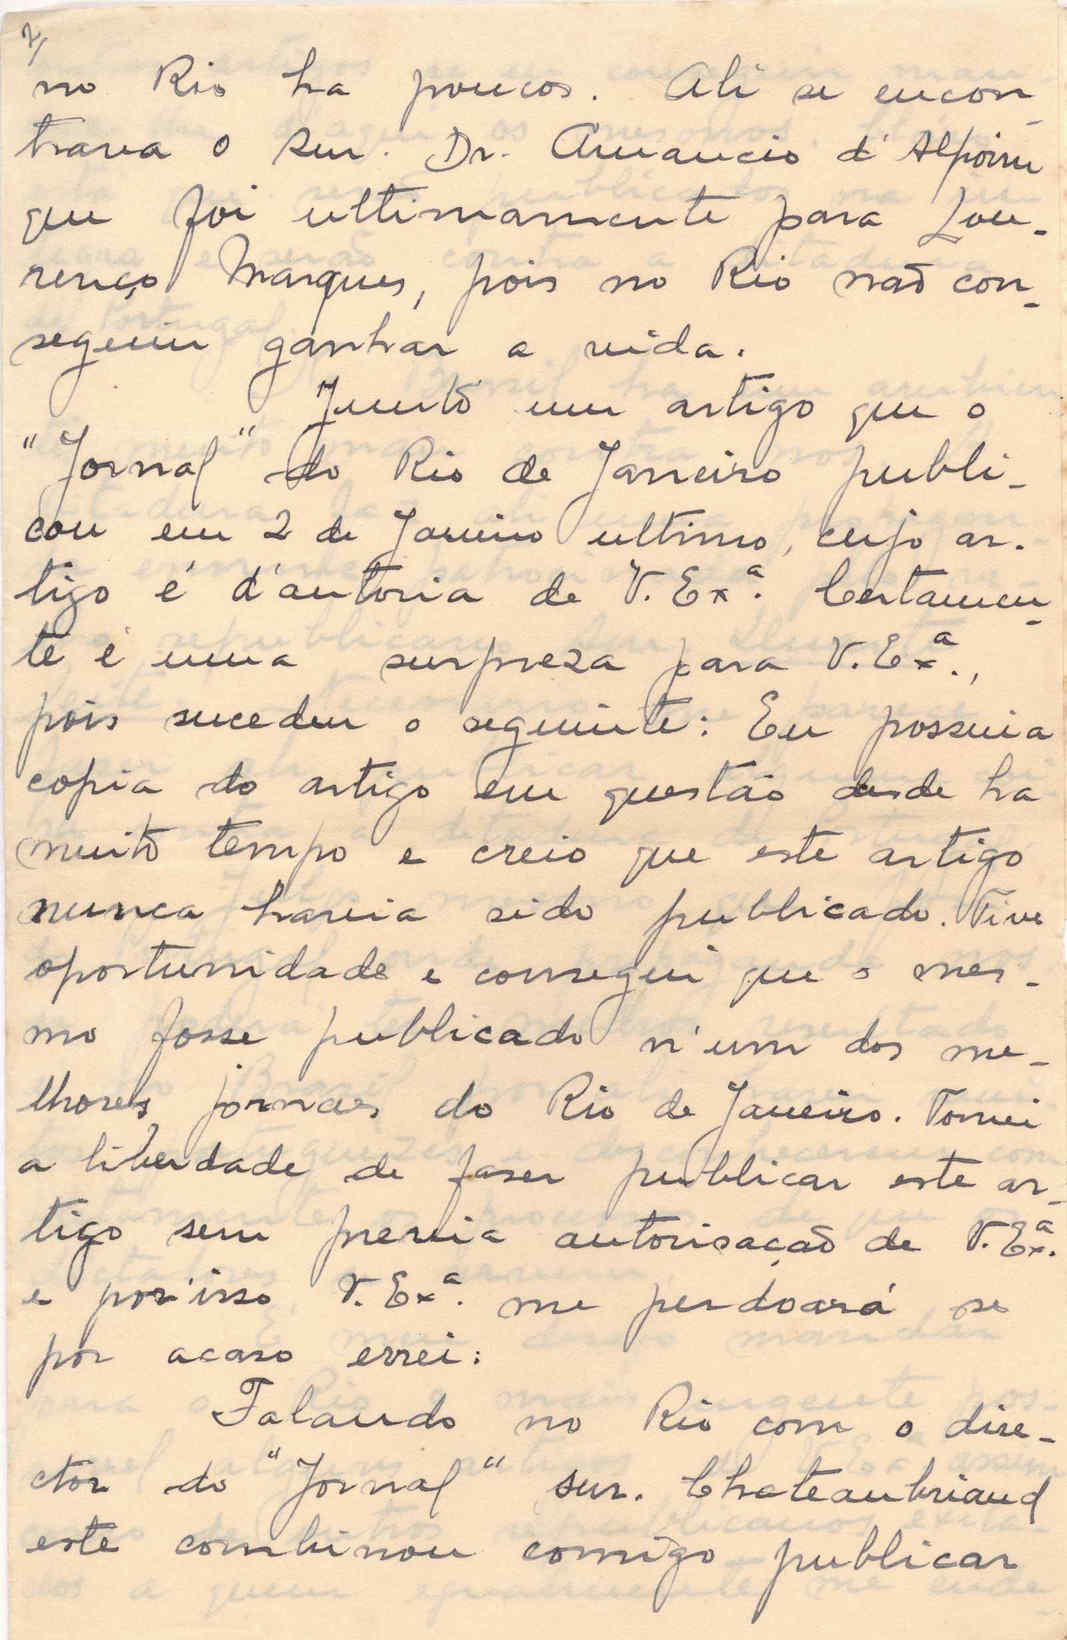 2/
no Rio ha poucos. Ali se encon-
trava o Snr. Dr. Amancio d'Alpoim
que foi ultimamente para Lou-
renço Marques, pois no Rio não con-
seguiu ganhar a vida.
Junto um artigo que o
"Jornal" do Rio de Janeiro publi-
cou em 2 de Janeiro ultimo, cujo ar-
tigo é d'autoria de V. Exª. Certamen-
te é uma surpreza para V. Exª.,
pois sucedeu o seguinte: Eu possuia
copia do artigo em questão desde ha
muito tempo e creio que este artigo
nunca havia sido publicado. Tive
oportunidade e consegui que o mes-
mo fosse publicado n'um dos me-
lhores jornaes do Rio de Janeiro. Tomei
a liberdade de faser publicar este ar-
tigo sem previa autorisação de V. Exª.
e por'isso V. Exª. me perdoará se
por acaso errei:
Falando no Rio com o dire-
ctor do "Jornal" snr. Chateaubriand
este combinou comigo publicar